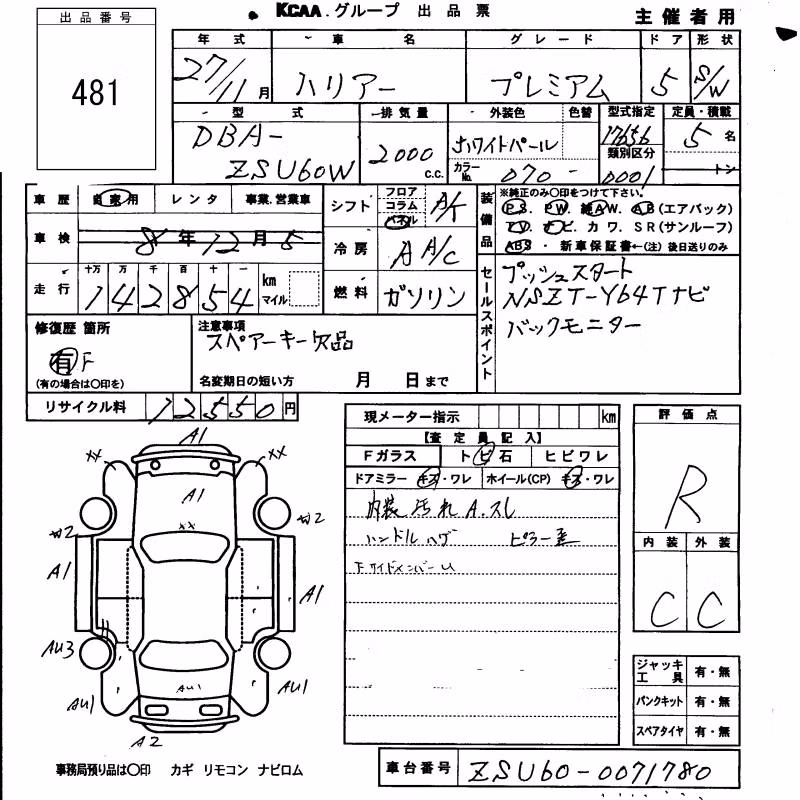 KCAA.グループ 出品票
主催者用
出品番号
481
年式 車名 グレード ドア 形状
27/11月 ハリアー プレミアム 5 S/W
型式 排気量 外装色 色替 型式指定 定員・積載
DBA-
ZSU60W
2000 c.c.
ホワイトパール
カラーNo. 070 -
17656
類別区分
0001
5名
トン
車歴 自家用 レンタ 事業.営業車
車検 8年12月5
走行 十万 万 千 百 十 一
142854 km マイル
シフト フロア コラム パネル A/T
冷房 A A/C
燃料 ガソリン
装備品
※純正のみ○印をつけて下さい。
P.S. P.W. 純A.W. A.B(エアバック)
T.V. ナビ. カワ. S R(サンルーフ)
ABS ・ 新車保証書←(注)後日送りのみ
セールスポイント
プッシュスタート
NSZT-Y64Tナビ
バックモニター
修復歴 箇所
有 F
(有の場合は○印を)
注意事項
スペアーキー欠品
名変期日の短い方 月 日まで
リサイクル料 12550円
現メーター指示 km
【査定員記入】
Fガラス トビ石 ヒビワレ
ドアミラー キズ・ワレ ホイール(CP) キズ・ワレ
内装 汚れ A.スレ
ハンドル ハゲ ピラー歪
下サイドメンバーU
評価点
R
内装 外装
C C
ジャッキ工具 有・無
パンクキット 有・無
スペアタイヤ 有・無
A1
XX XX
A1
XX
W2 W2
A1 A1
AU3
AU1 AU1 AU1
A2
事務局預り品は○印 カギ リモコン ナビロム
車台番号 ZSU60-0071780